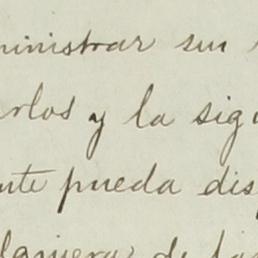 ministrar sin
rlos y la sigu
nte pueda dis
laniera de la